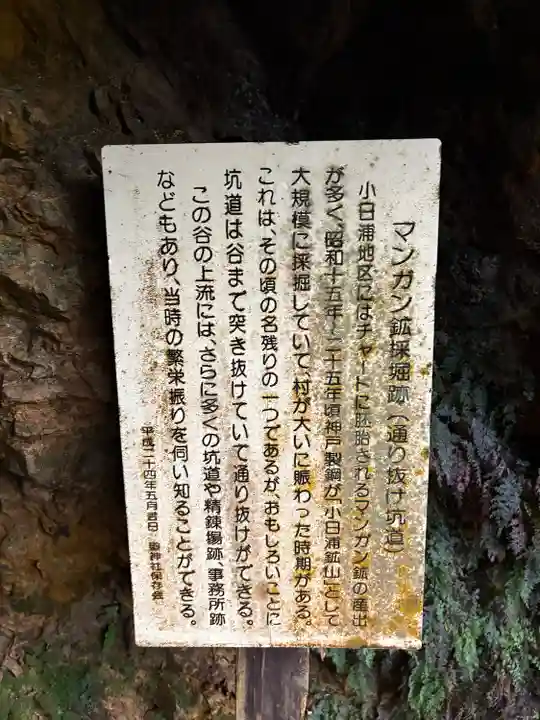 マンガン鉱採掘跡(通り抜け坑道)
小日浦地区にはチャートに胚胎されるマンガン鉱の産出
が多く、昭和十五年~二十五年頃神戸製鋼が「小日浦鉱山」として
大規模に採掘していて、村が大いに賑わった時期がある。
これは、その頃の名残りの一つであるが、おもしろいことに
坑道は谷まで突き抜けていて通り抜けができる。
この谷の上流には、さらに多くの坑道や精錬場跡、事務所跡
などもあり、当時の繁栄振りを伺い知ることができる。
平成二十四年五月吉日 神社保存会